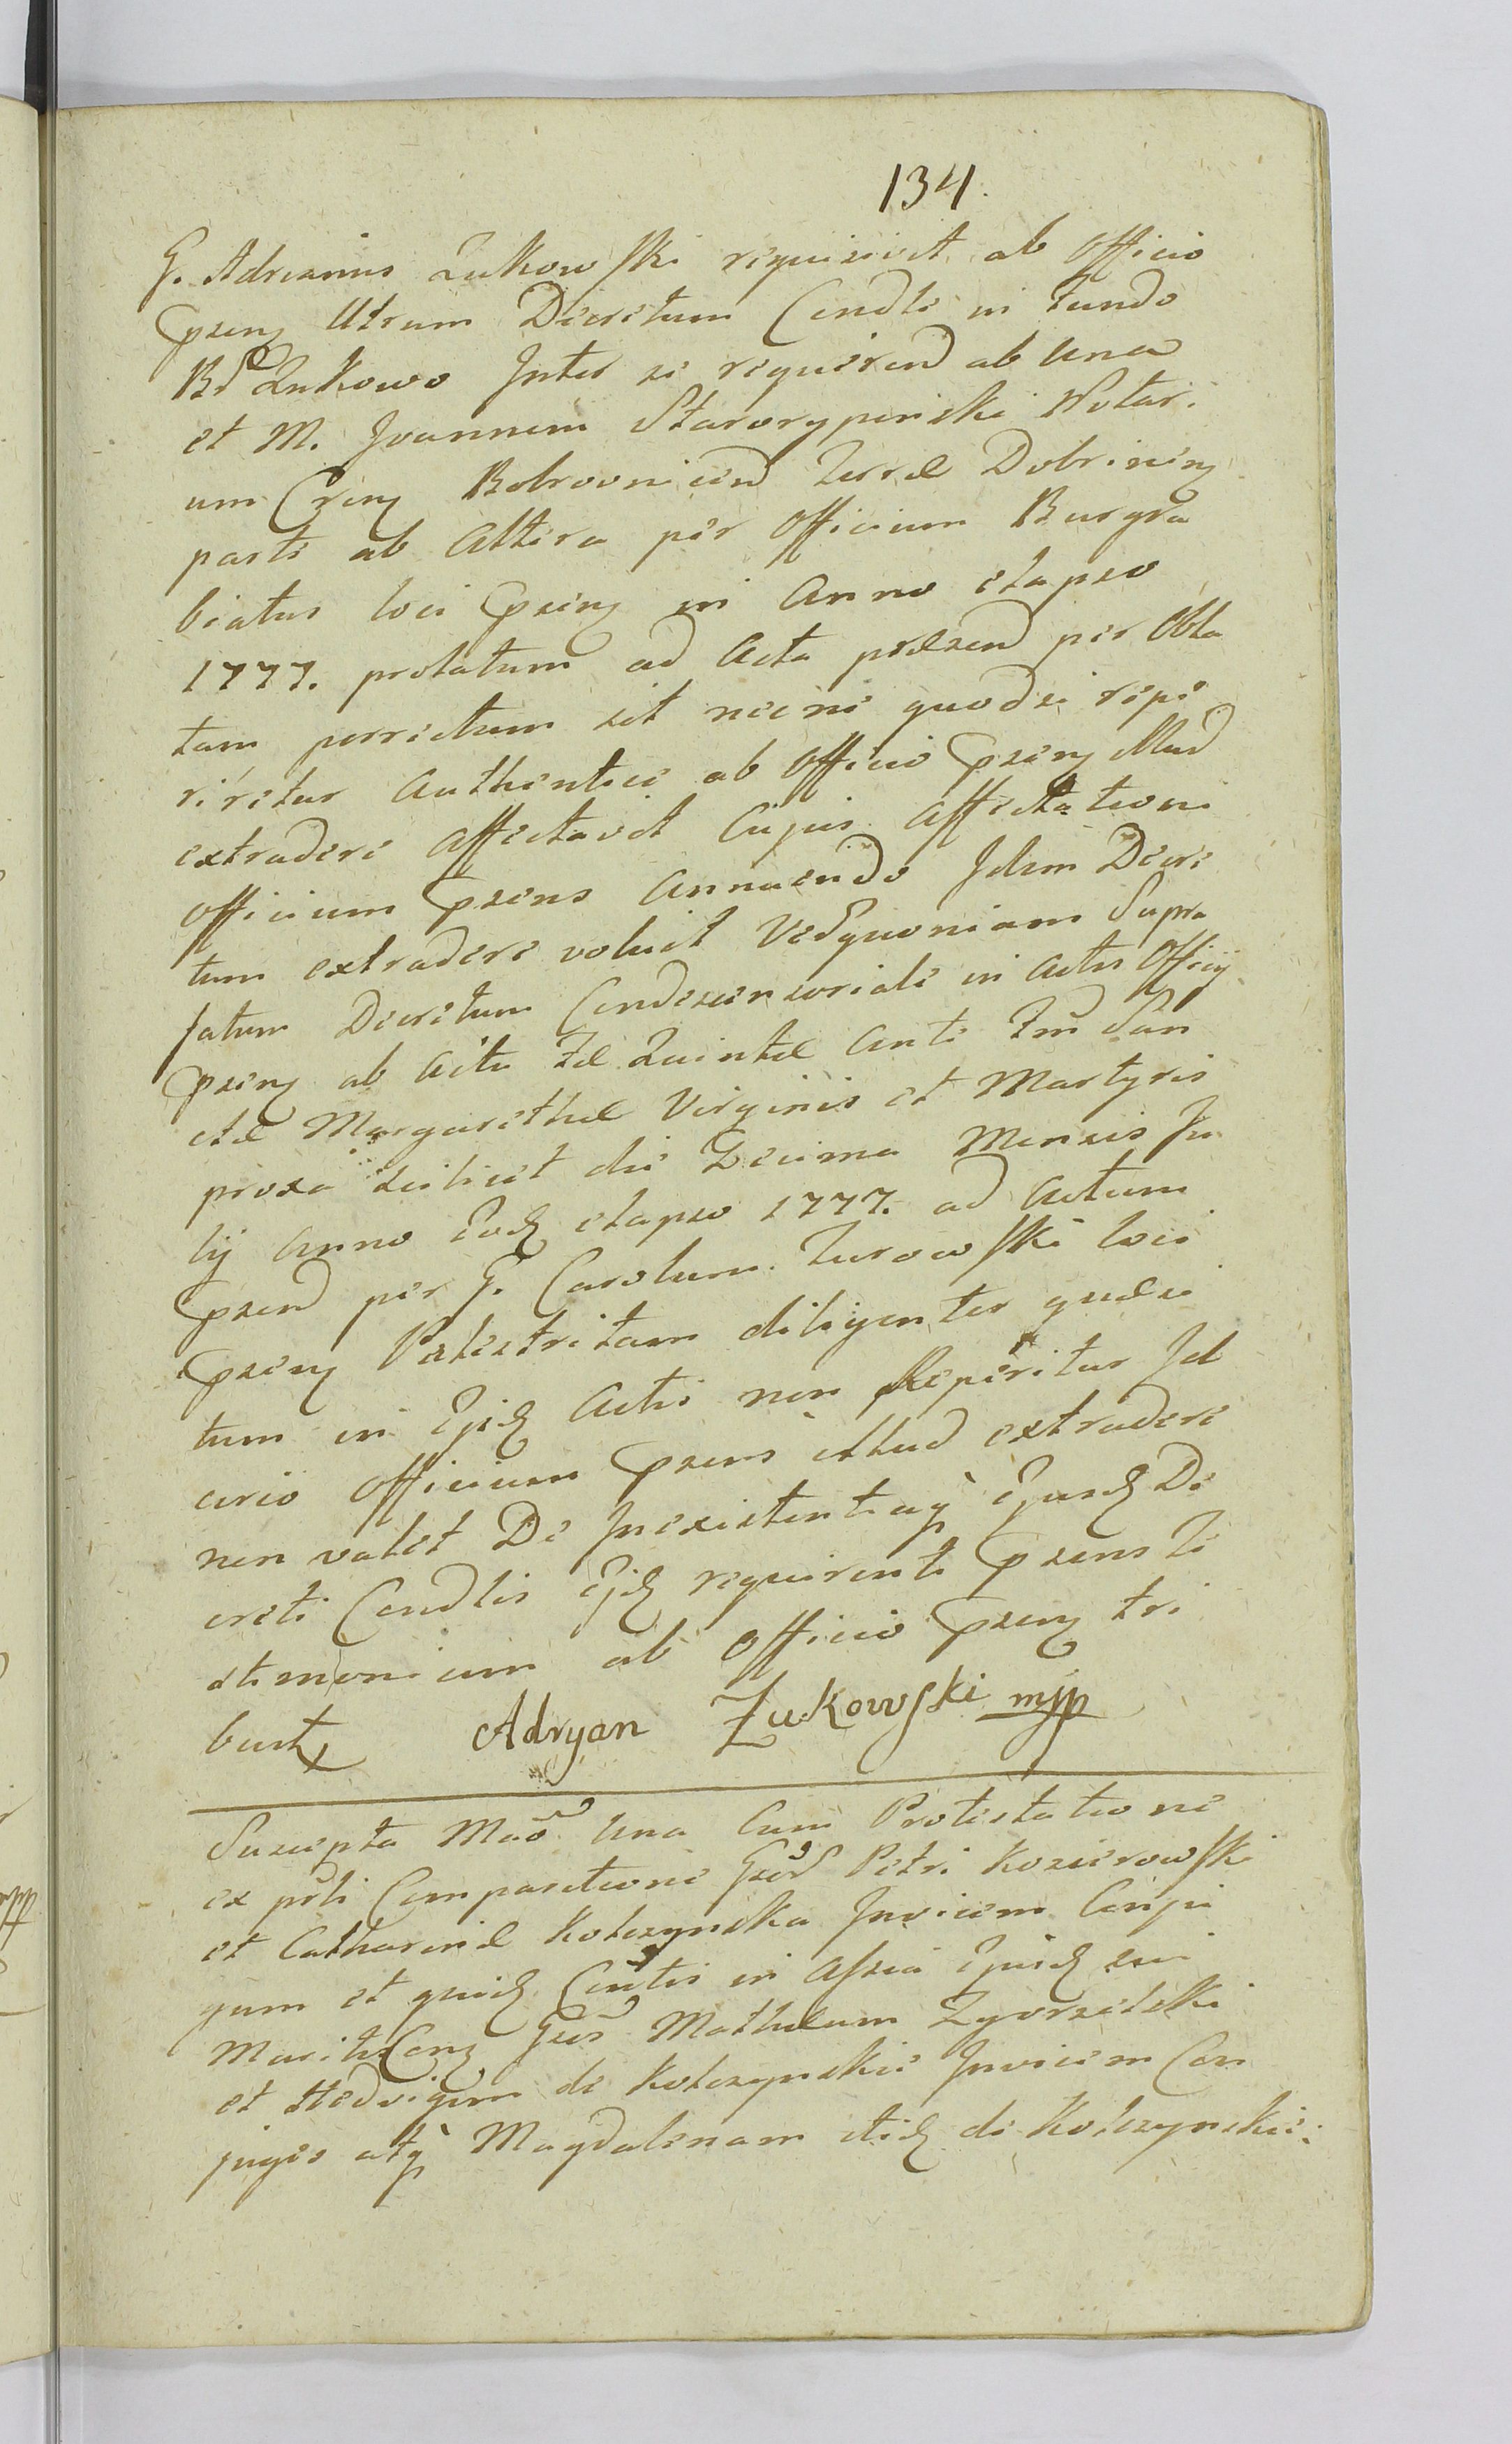 134.
G. Adrianus Zukowski requisivit ab Officio
pseng Utrum Decretum Condle in Fundo
Bd Zukowo Inter se requirend ab una
et M. Joannem Starorypinski Notari
um Creng Bobrovnicend Terræ Dobrineng
parte ab Altera per Officium Burgra
biatus loci pseng in Anno elapso
1777. prolatum ad Acta præsend per Obla
tam porrectum sit necne quod si repe
riretur Authentice ab Officio pseng Illud
extradere affectavit Cujus affectationi
Officium psens Annuendo Idem Decre
tum extradere voluit Vedquoniam Supra
fatum Decretum Condescensoriale in Actis Officij
pseng ab Actu Fæ Quintæ Ante Fm San
ctæ Margarethæ Virginis et Martyris
proxa scilicet die Decima Mensis Ju
lij Anno Eodq elapso 1777. ad Actum
psend per G. Carolum Zurowski loci
pseng Palestritam diligenter quæsi
tum in Ejsdq Actis non Reperitur Id
circo Officium psens illud extradere
non valet De Inexistentiaq Ejusdq De
creti Condlis Ejdq requirenti psens te
stimonium ab Officio pseng tri
buit
Adryan Zukowski mpp
Suscepta Mão una Cum Protestatione
ex prti Comparitione Gsõr Petri Kozierowski
et Catharinæ Kolczynska Invicem Conju
gum et quidq Cõntis in Assia Ejusdq sui
Mariti Cong Gsõs Mathæum Zgorzelski
et Hedvigim de Kolczynskie Invicem Con
juges atq Magdalenam itidq de Kolczynskie